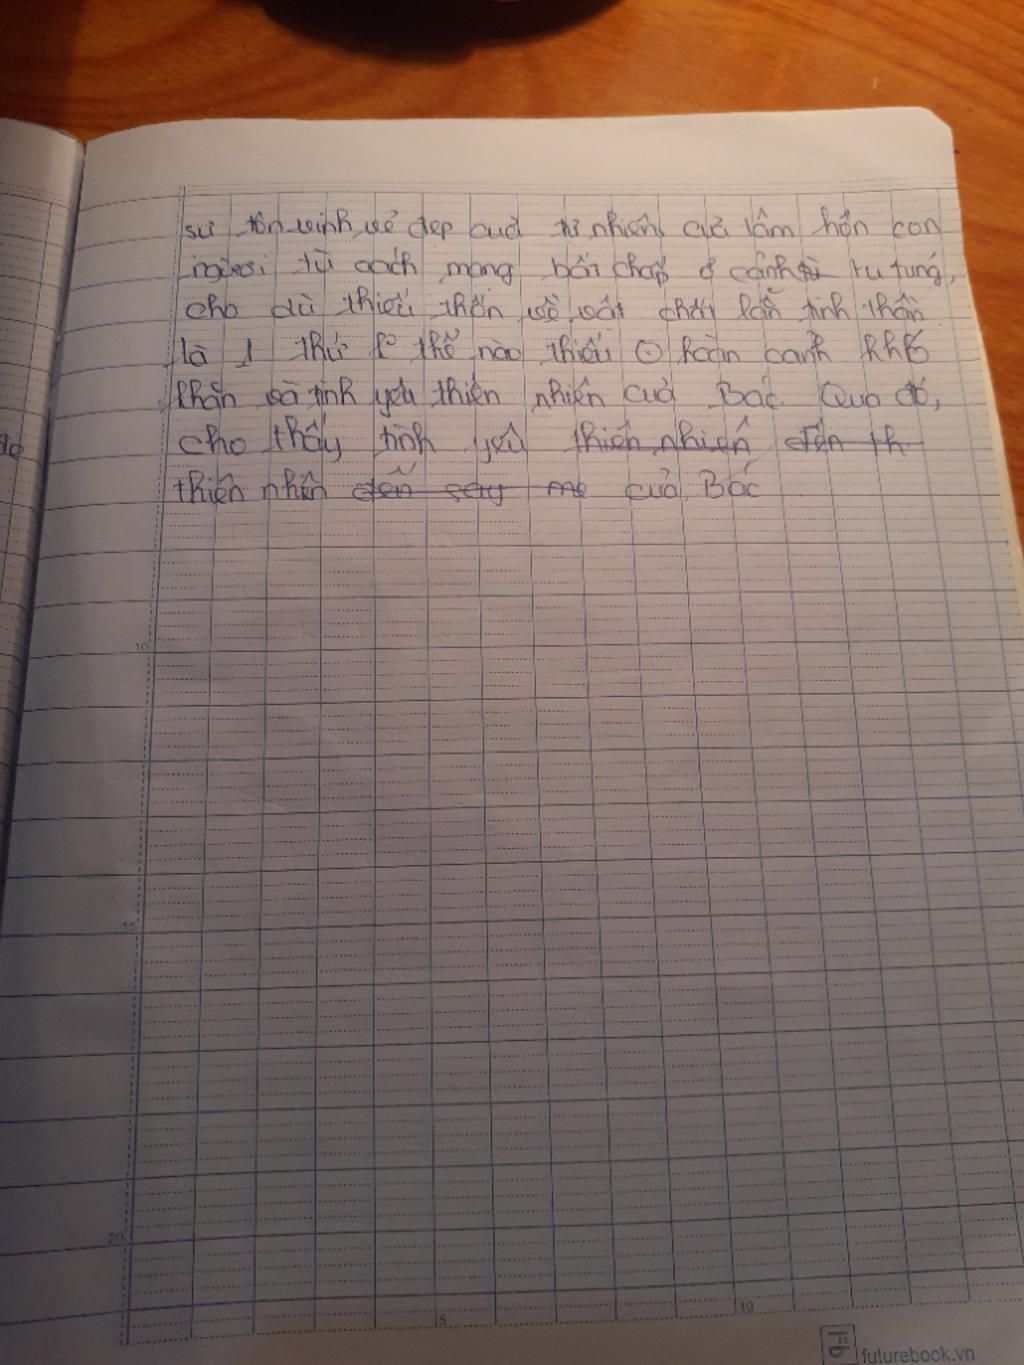 sự tôn vinh vẻ đẹp của tự nhiên, của tâm hồn con
người tù cách mạng bất chấp ở cảnh tù tu tung,
cho dù thiếu thốn về vật chất lẫn tinh thần
là 1 thứ k thể nào thiếu hoàn canh khó
khăn và tình yêu thiên nhiên của Bác. Qua đó,
cho thấy tình yêu thiên nhiên đến th
thiên nhên đến say mê của Bác
10
15
20
5
10
futurebook.vn